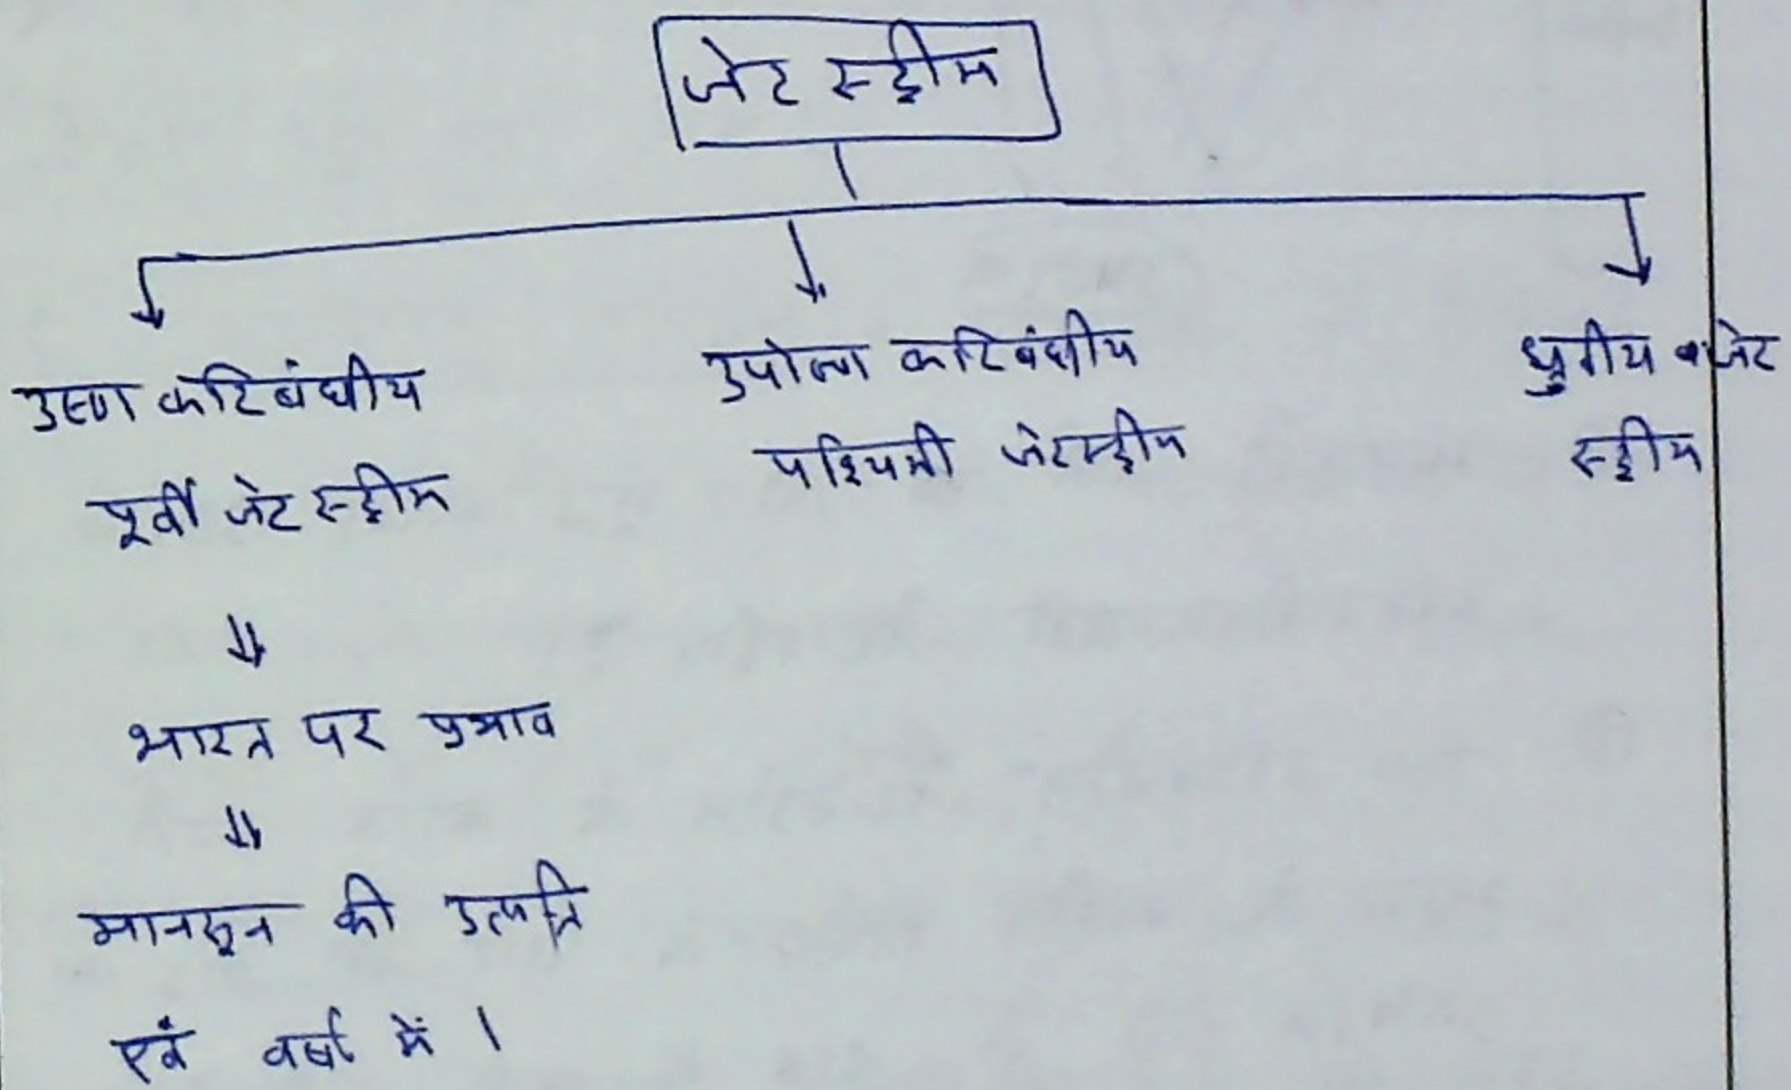 जेट स्ट्रीम
उष्ण कटिबंधीय
पूर्वी जेट स्ट्रीम
⇓
भारत पर प्रभाव
⇓
मानसून की उत्पत्ति
एवं वर्षा में ।
उपोष्ण कटिबंधीय
पश्चिमी जेटस्ट्रीम
ध्रुवीय जेट
स्ट्रीम